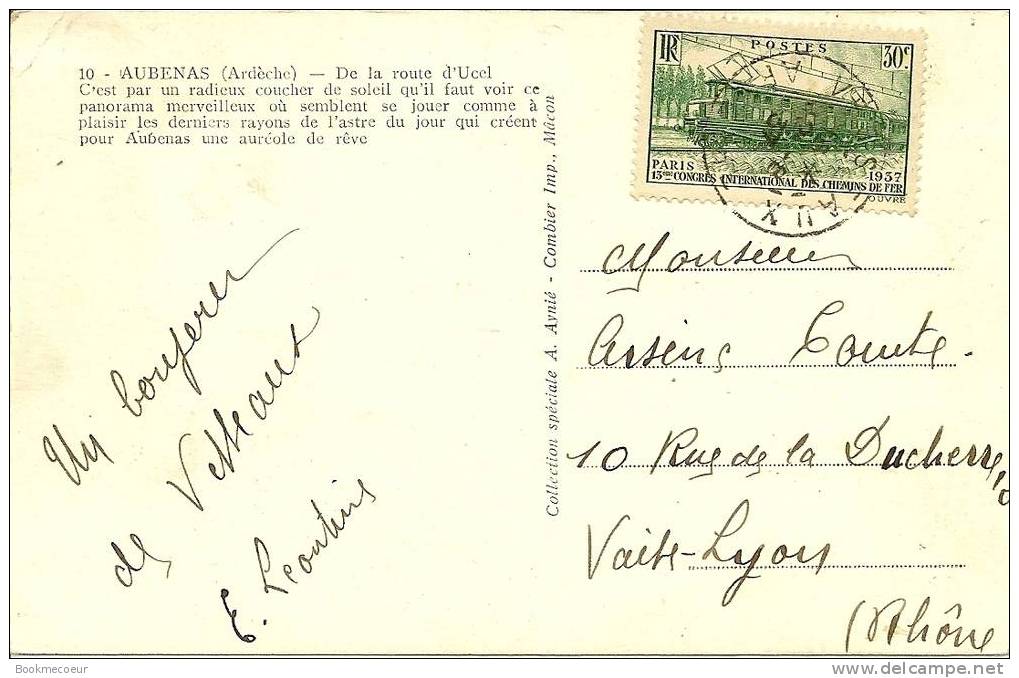 10 - AUBENAS (Ardèche) — De la route d'Ucel
C'est par un radieux coucher de soleil qu'il faut voir ce
panorama merveilleux où semblent se jouer comme à
plaisir les derniers rayons de l'astre du jour qui créent
pour Aubenas une auréole de rêve
Un
de
E. Léontine
Collection spéciale A. Aynié - Combier Imp., Mâcon
RF POSTES 30c
PARIS 1937
13ème CONGRÈS INTERNATIONAL DES CHEMINS DE FER
OUVRÉ
Monsieur
Arsène Comte.
10 Rue de la Duchère
Vaise-Lyon
(Rhône
Bookmecoeur
www.delcampe.net